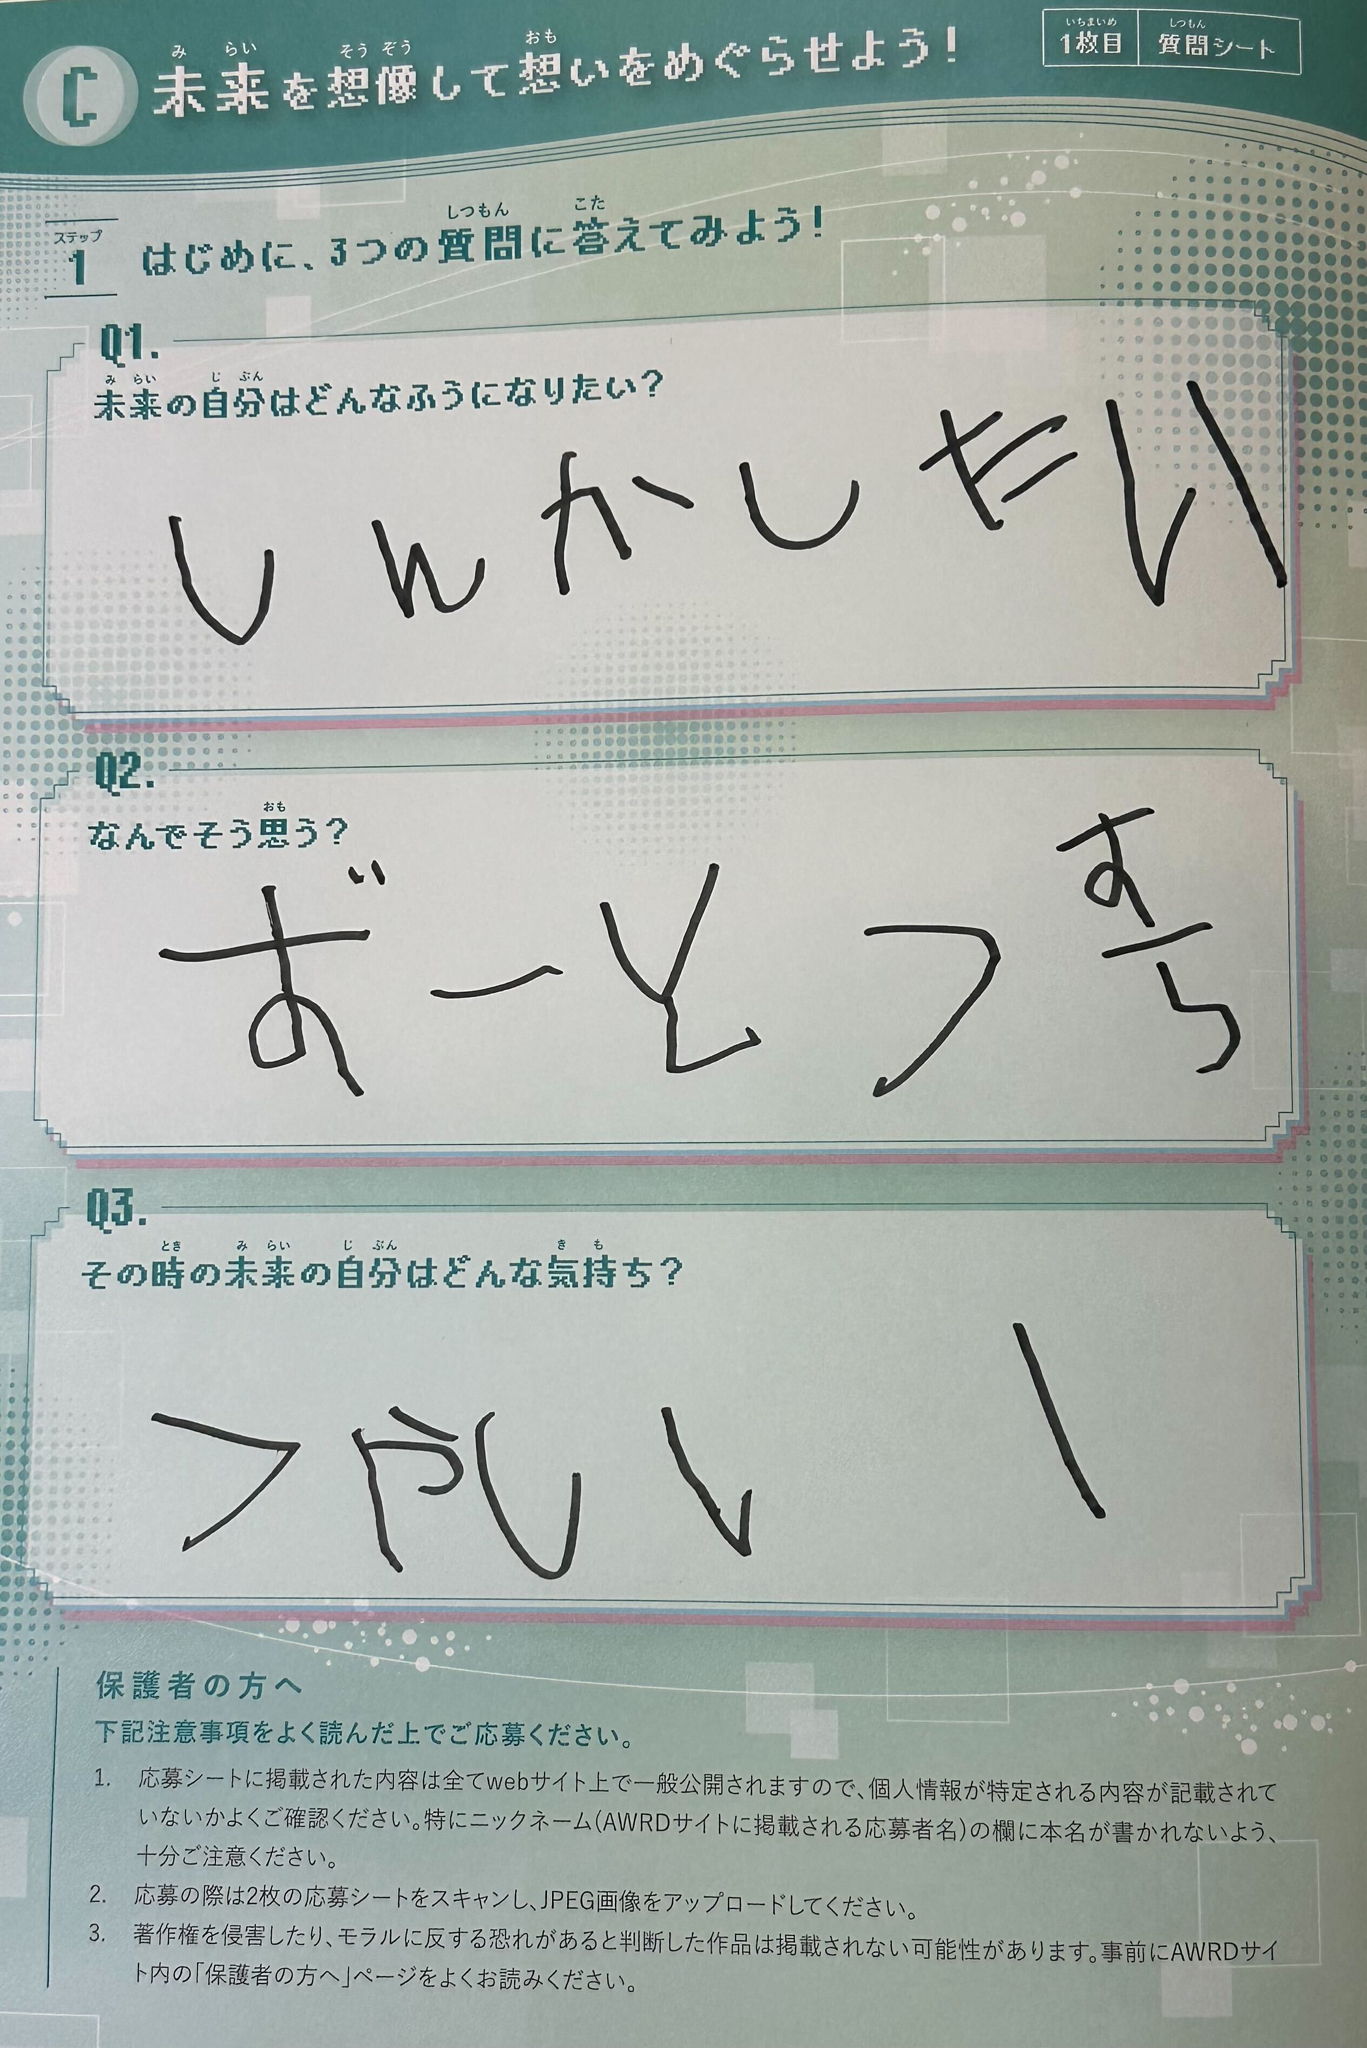 C 未来を想像して想いをめぐらせよう!
1枚目 質問シート
ステップ1 はじめに、3つの質問に答えてみよう!
Q1.
未来の自分はどんなふうになりたい?
しんかしたい
Q2.
なんでそう思う?
ずーとつ
すーら
Q3.
その時の未来の自分はどんな気持ち?
つやしい
保護者の方へ
下記注意事項をよく読んだ上でご応募ください。
1. 応募シートに掲載された内容は全てwebサイト上で一般公開されますので、個人情報が特定される内容が記載されて
いないかよくご確認ください。特にニックネーム(AWRDサイトに掲載される応募者名)の欄に本名が書かれないよう、
十分ご注意ください。
2. 応募の際は2枚の応募シートをスキャンし、JPEG画像をアップロードしてください。
3. 著作権を侵害したり、モラルに反する恐れがあると判断した作品は掲載されない可能性があります。事前にAWRDサイ
ト内の「保護者の方へ」ページをよくお読みください。